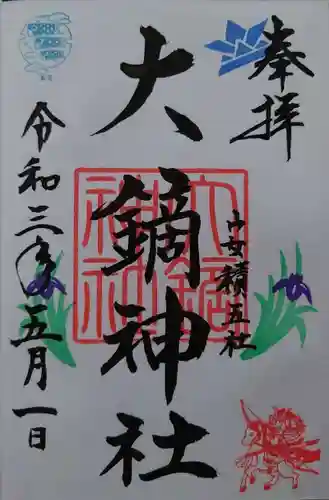 奉拝
安積五社
大鏑神社
大鏑神社
令和三年五月一日